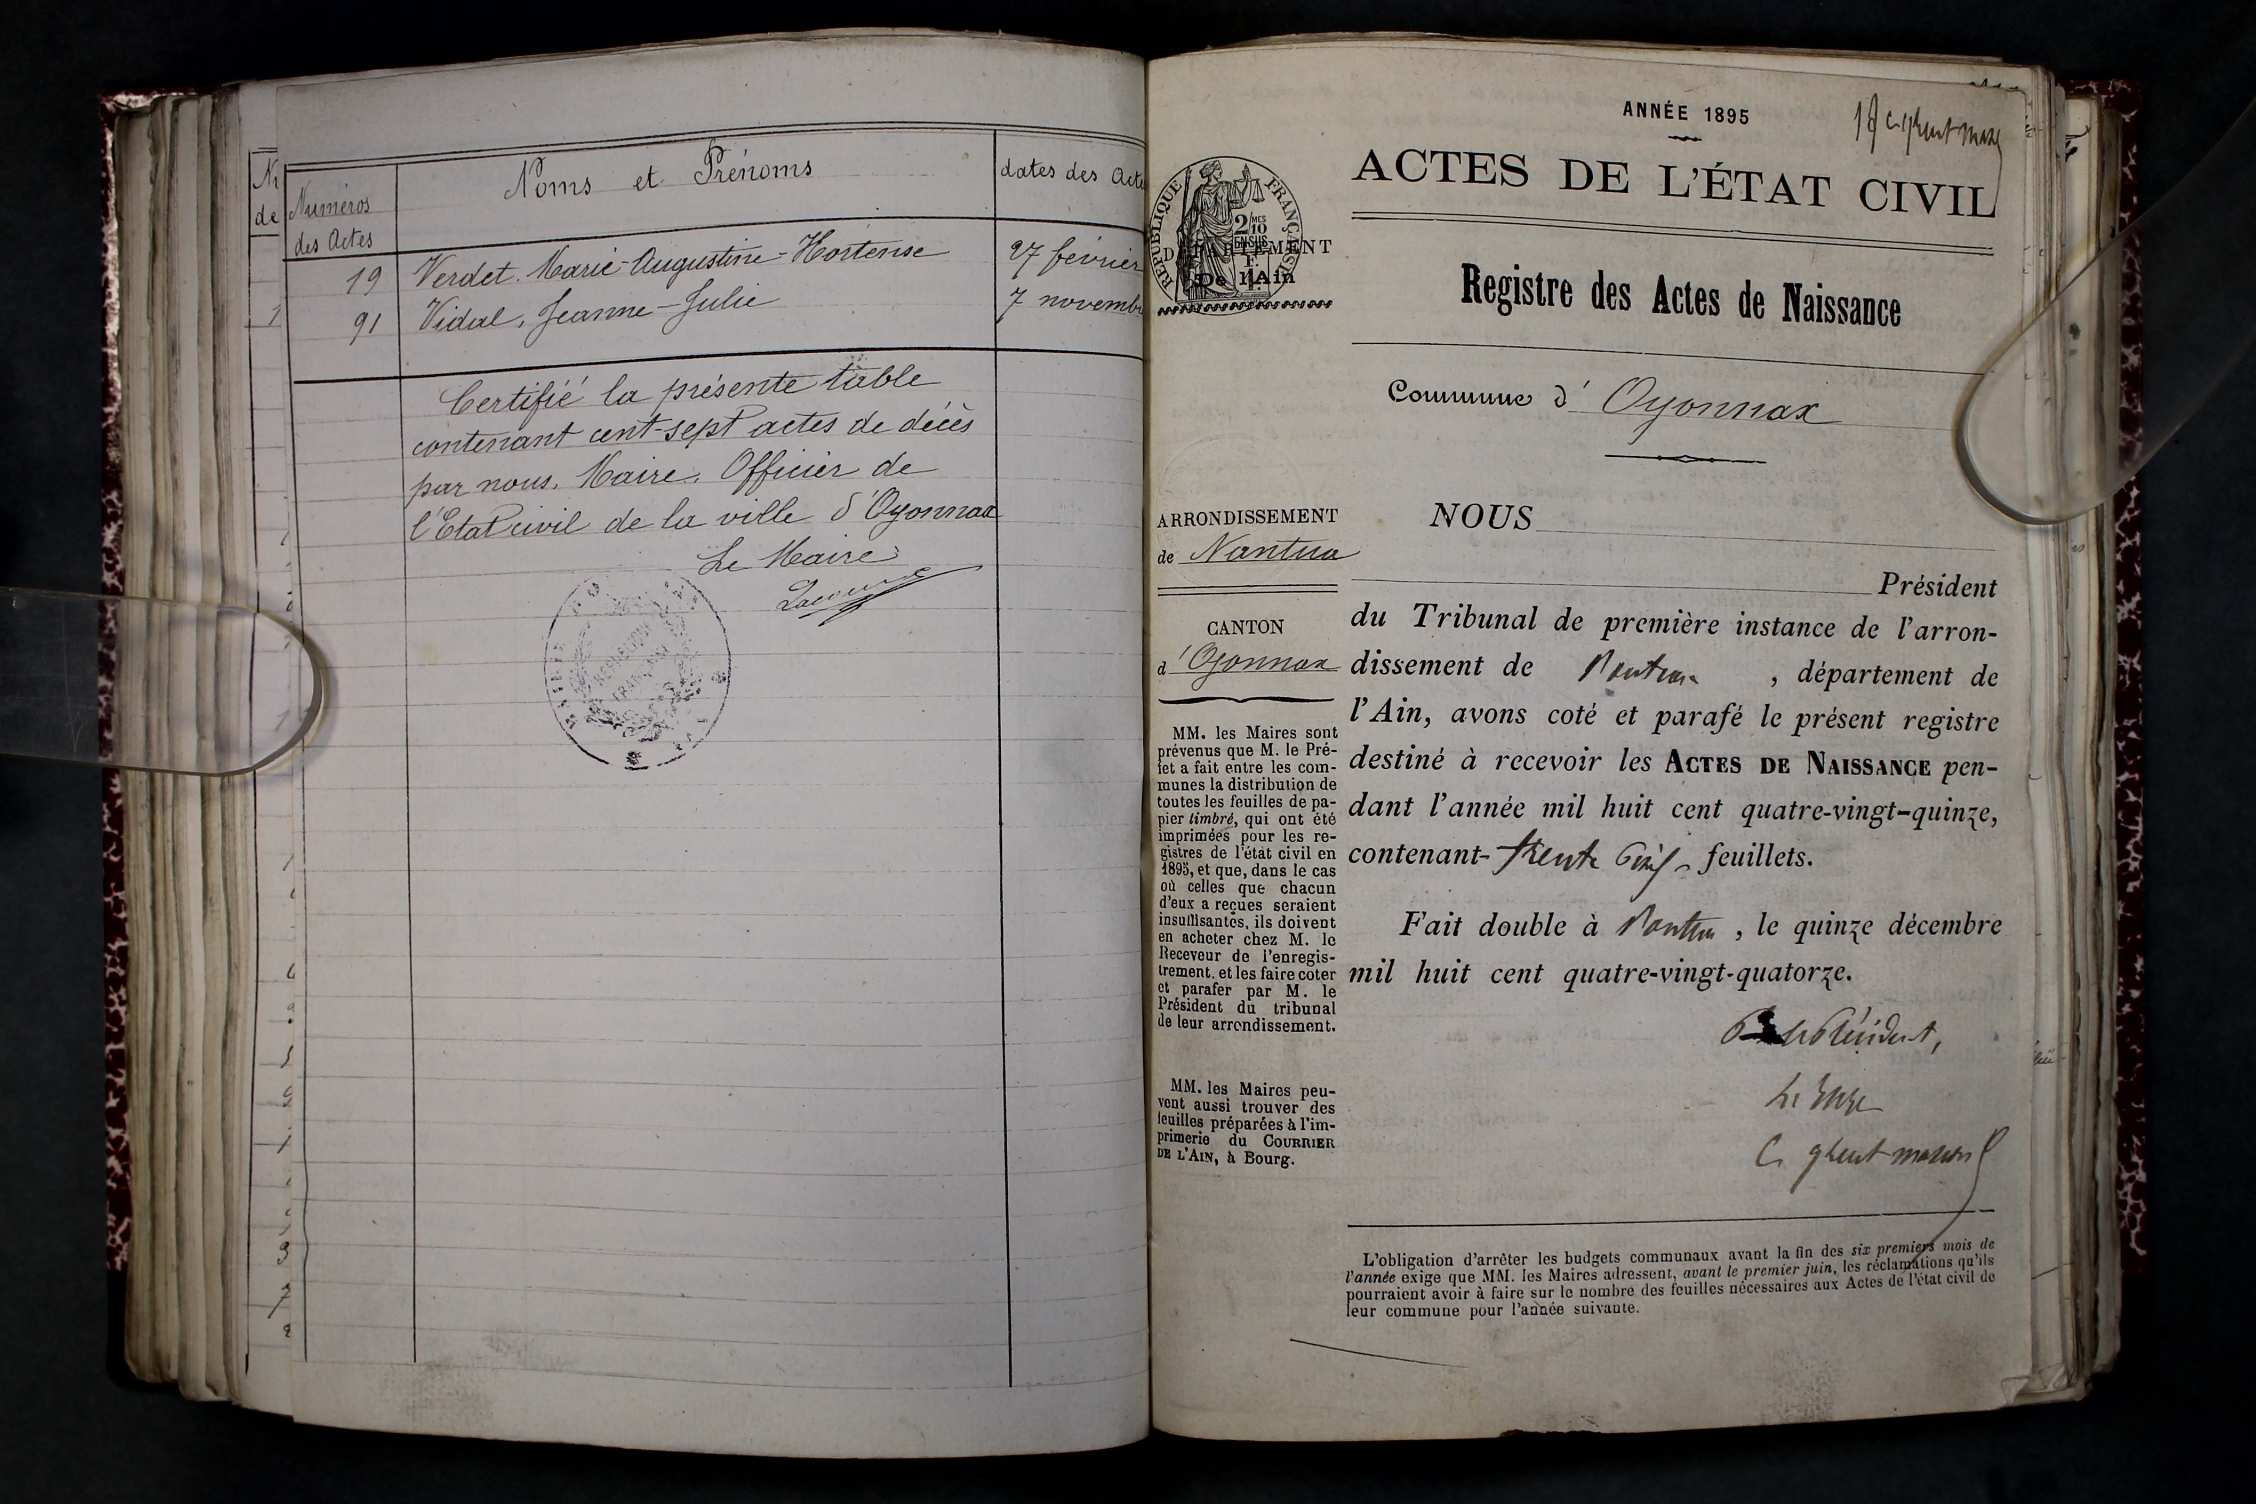 Numéros
des Actes
Noms et Prénoms
dates des Acte
19 Verdet. Marie-Augustine-Hortense 27 février
91 Vidal, Jeanne-Julie 7 novemb
Certifié la présente table
contenant cent-sept actes de décès
par nous, Maire, Officier de
l'Etat civil de la ville d'Oyonnax
Le Maire
RÉPUBLIQUE FRANÇAISE
ANNÉE 1895
ACTES DE L'ÉTAT CIVIL
RÉPUBLIQUE FRANÇAISE
2 MES
10
EN SUS
DÉPARTEMENT
De l'Ain
Registre des Actes de Naissance
Commune d' Oyonnax
ARRONDISSEMENT
de Nantua
CANTON
d' Oyonnax
MM. les Maires sont
prévenus que M. le Pré-
fet a fait entre les com-
munes la distribution de
toutes les feuilles de pa-
pier timbré, qui ont été
imprimées pour les re-
gistres de l'état civil en
1895, et que, dans le cas
où celles que chacun
d'eux a reçues seraient
insuffisantes, ils doivent
en acheter chez M. le
Receveur de l'enregis-
trement, et les faire coter
et parafer par M. le
Président du tribunal
de leur arrondissement.
MM. les Maires peu-
vent aussi trouver des
feuilles préparées à l'im-
primerie du COURRIER
DE L'AIN, à Bourg.
NOUS
Président
du Tribunal de première instance de l'arron-
dissement de Nantua, département de
l'Ain, avons coté et parafé le présent registre
destiné à recevoir les ACTES DE NAISSANCE pen-
dant l'année mil huit cent quatre-vingt-quinze,
contenant trente cinq feuillets.
Fait double à Nantua, le quinze décembre
mil huit cent quatre-vingt-quatorze.
le Président,
Le Juge
L'obligation d'arrêter les budgets communaux avant la fin des six premiers mois de
l'année exige que MM. les Maires adressent, avant le premier juin, les réclamations qu'ils
pourraient avoir à faire sur le nombre des feuilles nécessaires aux Actes de l'état civil de
leur commune pour l'année suivante.